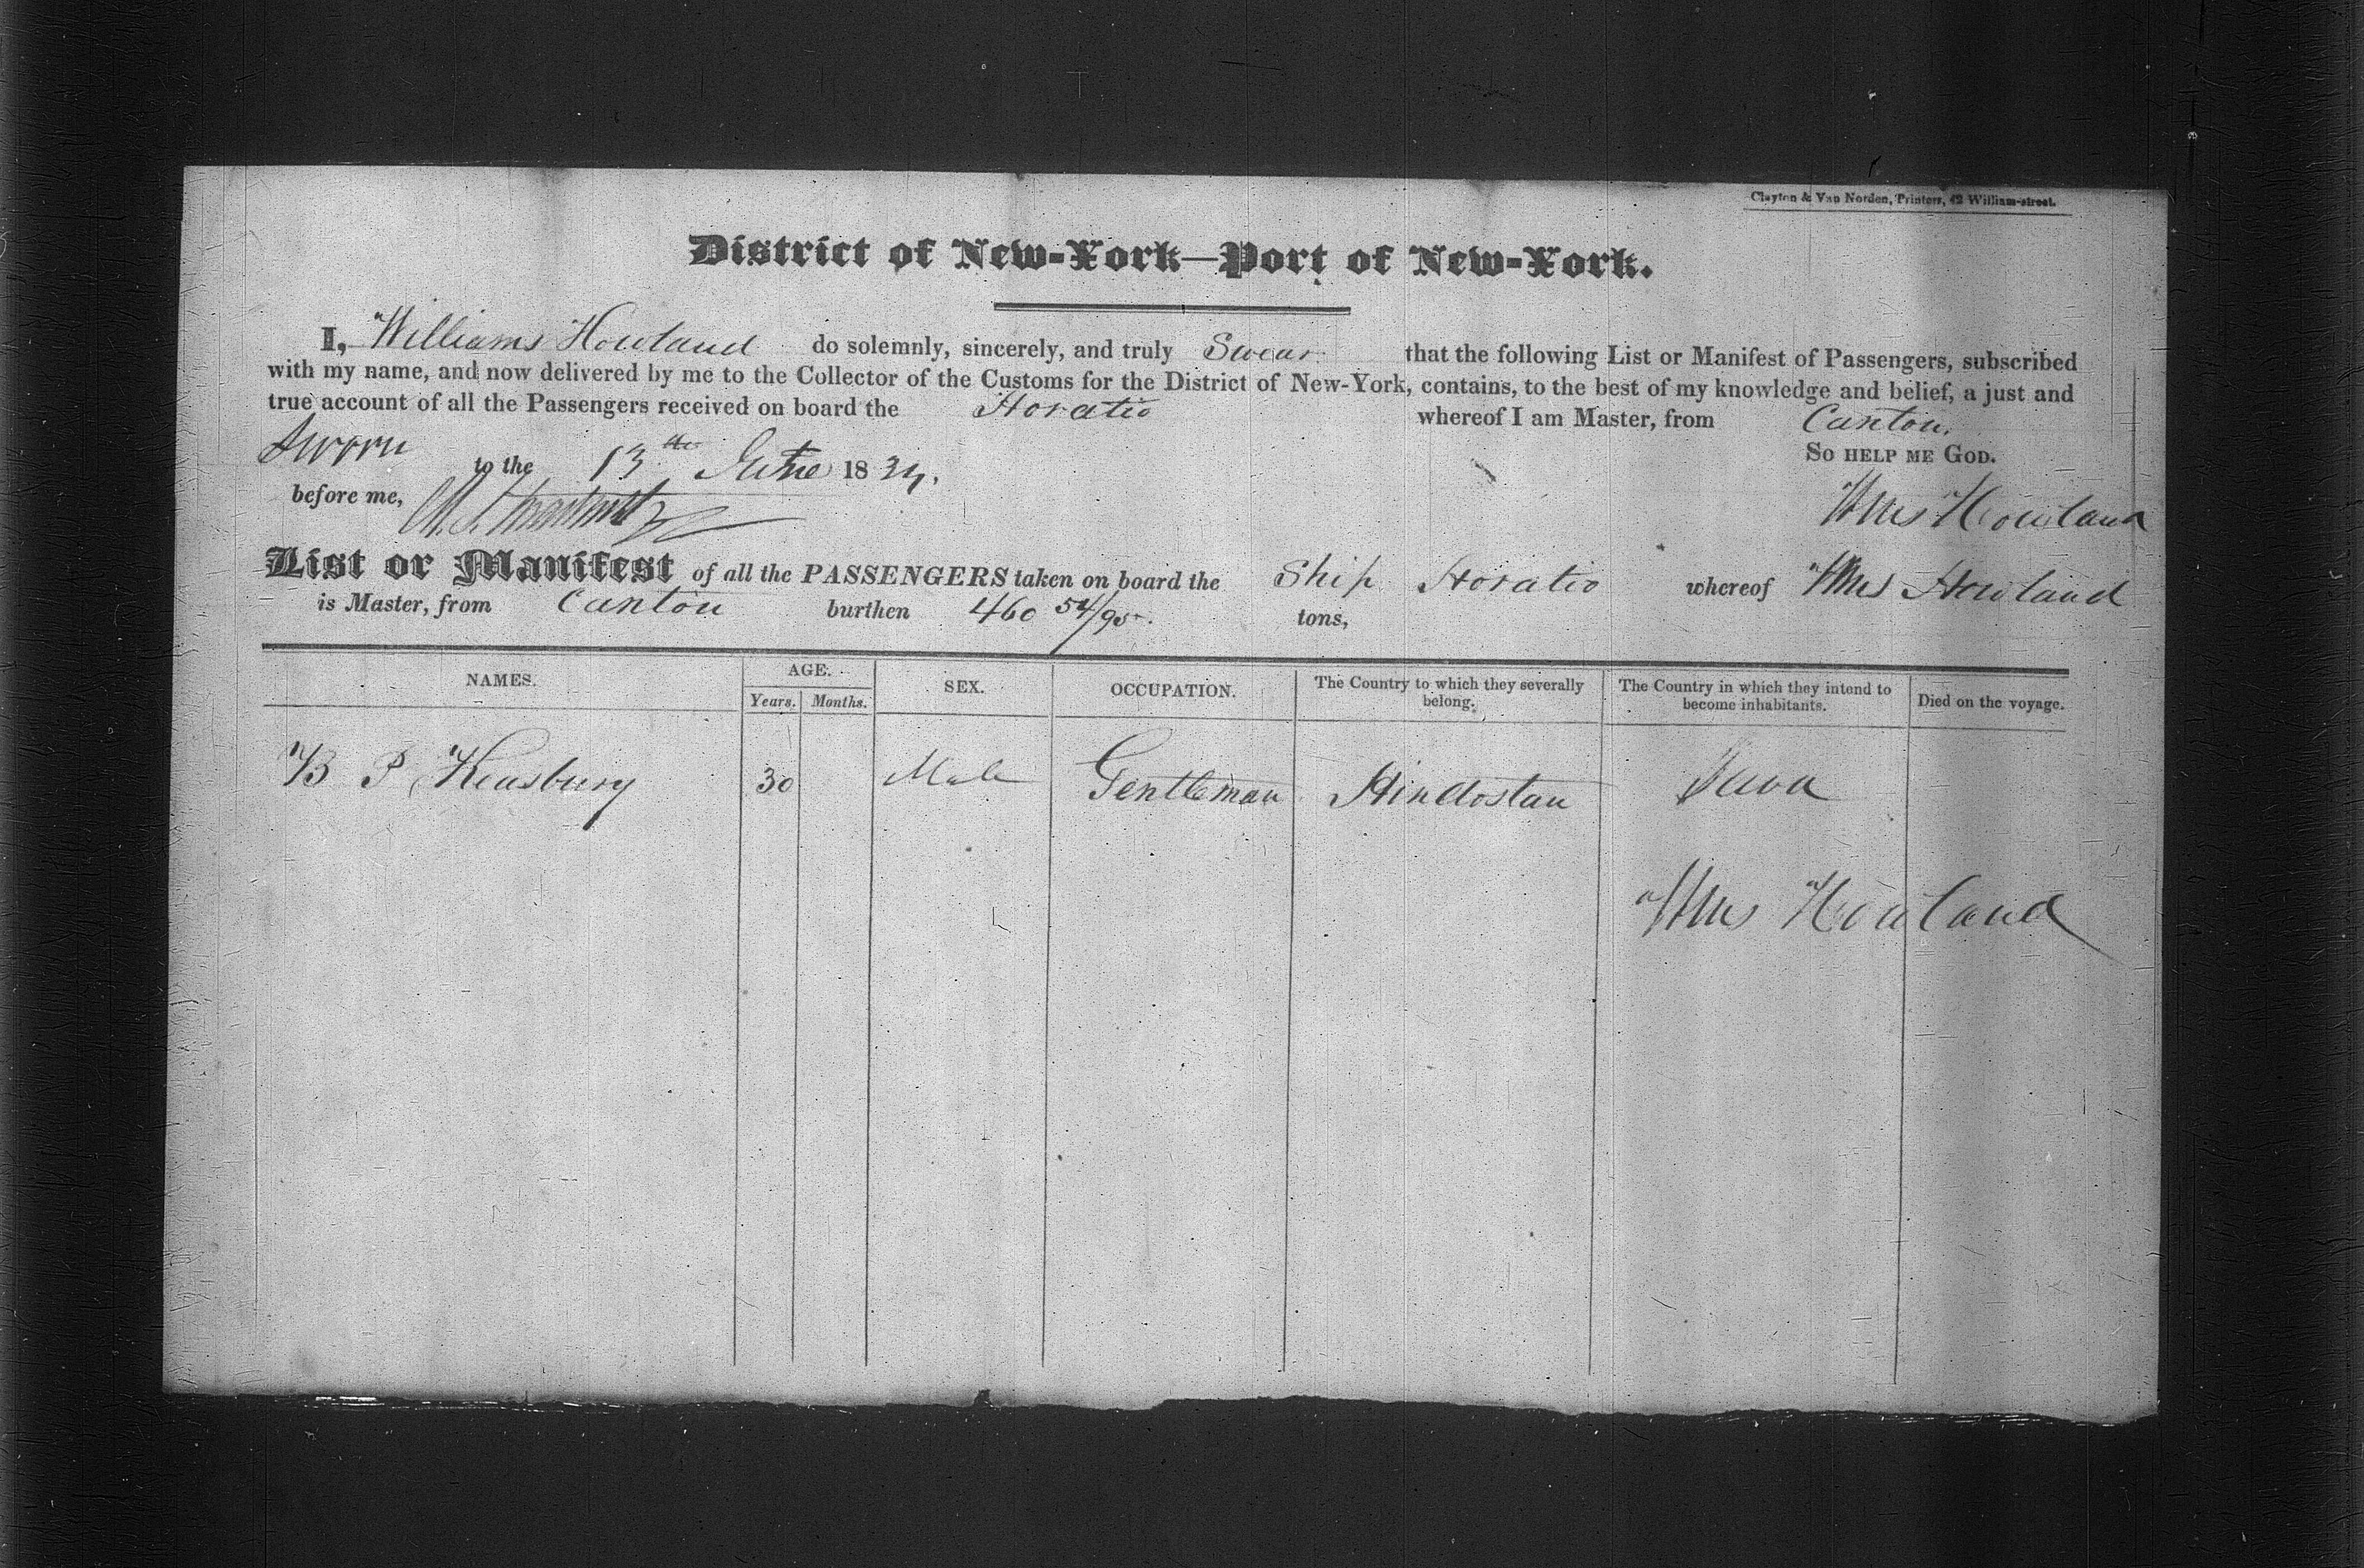 Clayton & Van Norden, Printers, 42 William-street.
District of New-York—Port of New-York.
I, Williams Howland do solemnly, sincerely, and truly Swear that the following List or Manifest of Passengers, subscribed
with my name, and now delivered by me to the Collector of the Customs for the District of New-York, contains, to the best of my knowledge and belief, a just and
true account of all the Passengers received on board the Horatio whereof I am Master, from Canton.
Sworn to the 13th June 1834. So help me God.
before me, Wms Howland
List or Manifest of all the PASSENGERS taken on board the Ship Horatio whereof Wms Howland
is Master, from Canton burthen 460 54/95 tons,
NAMES. AGE. SEX. OCCUPATION. The Country to which they severally belong. The Country in which they intend to become inhabitants. Died on the voyage.
Years. Months.
B P Keasbury 30 Male Gentleman Hindostan Java
Wms Howland